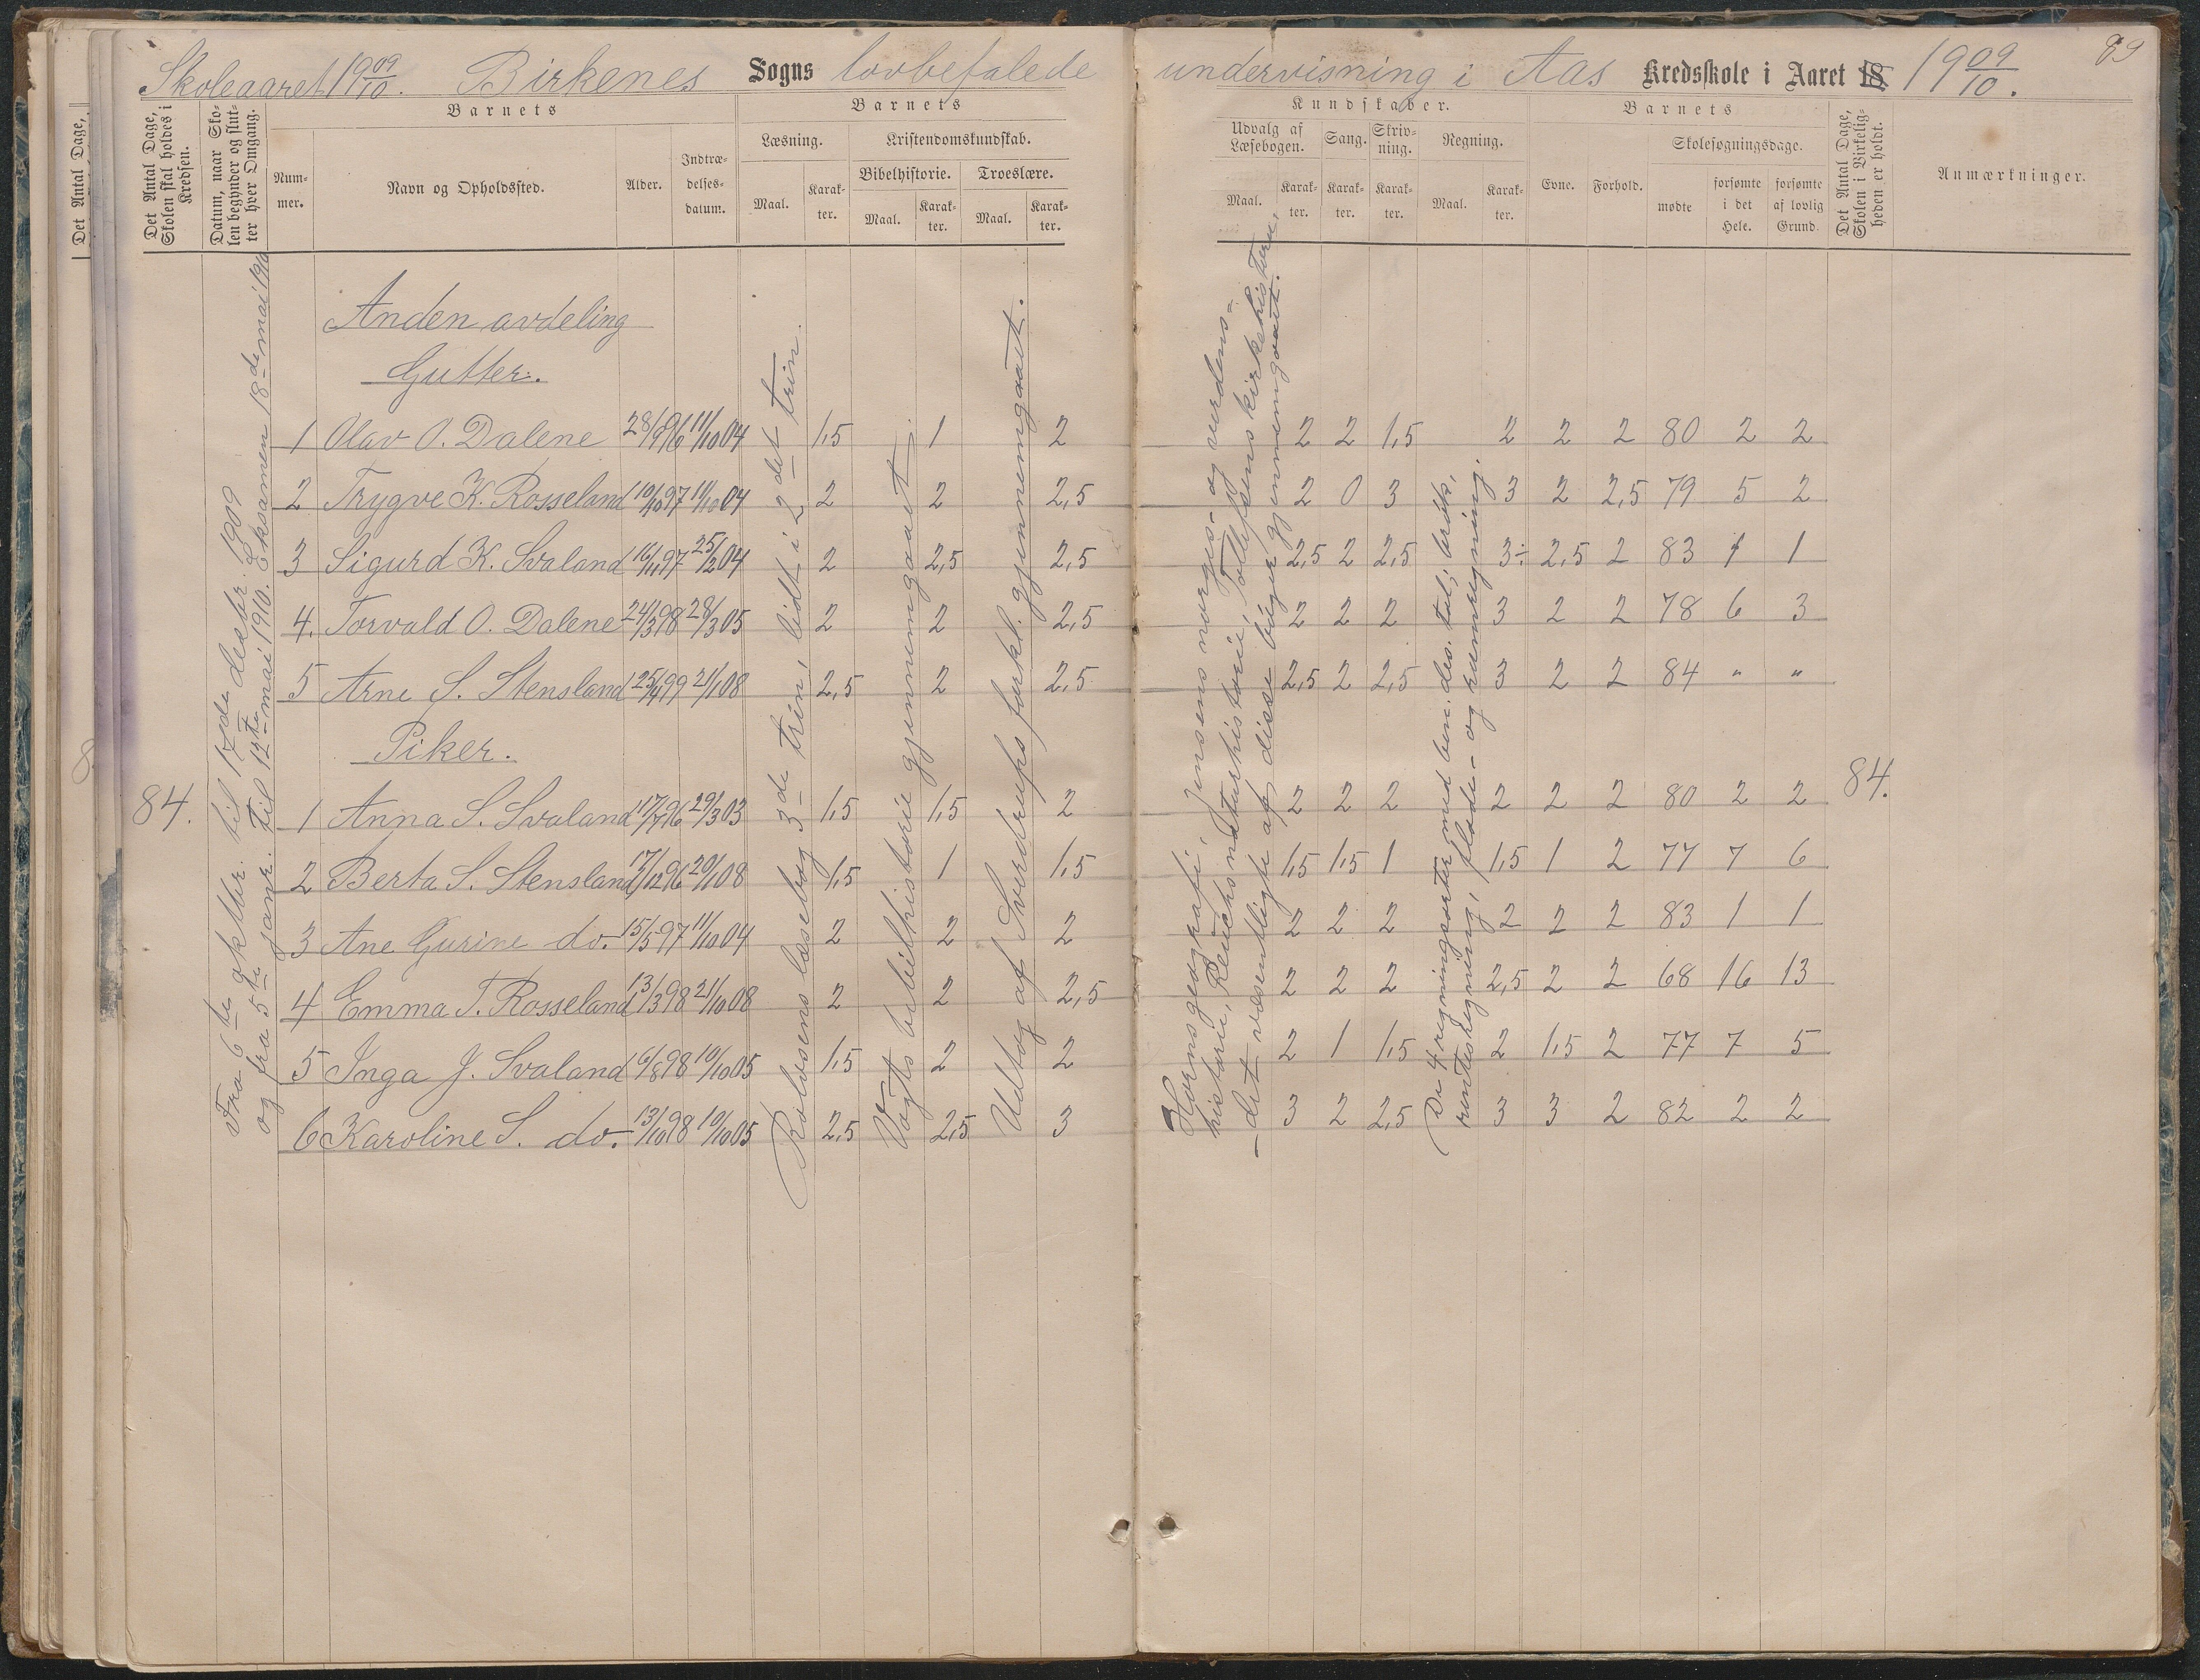 Skoleaaret 19 09/10. Birkenes Sogns lovbefalede undervisning i Aas Kredsskole i Aaret 18 19 09/10. 89
Det Antal Dage,
Det Antal Dage, Skolen skal holdes i Kredsen.
Datum, naar Skolen begynder og slutter hver Omgang.
Barnets
Nummer.
Navn og Opholdssted.
Alder.
Indtrædelsesdatum.
Barnets
Læsning.
Maal.
Karakter.
Kristendomskundskab.
Bibelhistorie.
Maal.
Karakter.
Troeslære.
Maal.
Karakter.
Kundskaber.
Udvalg af Læsebogen.
Maal.
Karakter.
Sang.
Karakter.
Skrivning.
Karakter.
Regning.
Maal.
Karakter.
Barnets
Evne.
Forhold.
Skolesøgningsdage.
mødte
forsømte i det Hele.
forsømte af lovlig Grund.
Det Antal Dage, Skolen i Virkeligheden er holdt.
Anmærkninger.
84.
Fra 6te oktbr. til 17de desbr. 1909
og fra 5te janr. til 12te mai 1910. Eksamen 18de mai 1910
Rolvsens læsebog 3de trin, lidt i 2det trin.
Vogts bibelhistorie gjennemgaaet.
Udtog af Sverdrups forkl. gjennemgaaet.
Horns geografi, Jensens norges- og verdens-
historie, Reuchs naturhistorie, Tollefsens kirkehistorie,
– det væsentligte af disse bøger gjennemgaaet.
De 4 regningsarter med ben. des. tal, brøk,
rentesregning, flade- og rumregning.
Anden avdeling
Gutter.
1 Olav O. Dalene 28/9 96 11/10 04 1,5 1 2 2 2 1,5 2 2 2 80 2 2
2 Trygve K. Rosseland 10/10 97 11/10 04 2 2 2,5 2 0 3 3 2 2,5 79 5 2
3 Sigurd K. Svaland 16/11 97 25/2 04 2 2,5 2,5 2,5 2 2,5 3÷ 2,5 2 83 1 1
4. Torvald O. Dalene 24/3 98 28/3 05 2 2 2,5 2 2 2 3 2 2 78 6 3
5 Arne S. Stensland 25/4 99 21/1 08 2,5 2 2,5 2,5 2 2,5 3 2 2 84 " "
Piker.
1 Anna S. Svaland 17/7 96 29/3 03 1,5 1,5 2 2 2 2 2 2 2 80 2 2 84.
2 Berta S. Stensland 17/12 96 20/1 08 1,5 1 1,5 1,5 1,5 1 1,5 1 2 77 7 6
3 Ane Gurine do. 15/5 97 11/10 04 2 2 2 2 2 2 2 2 2 83 1 1
4 Emma T. Rosseland 13/3 98 21/10 08 2 2 2,5 2 2 2 2,5 2 2 68 16 13
5 Inga J. Svaland 6/8 98 10/10 05 1,5 2 2 2 1 1,5 2 1,5 2 77 7 5
6 Karoline S. do. 13/10 98 10/10 05 2,5 2,5 3 3 2 2,5 3 3 2 82 2 2